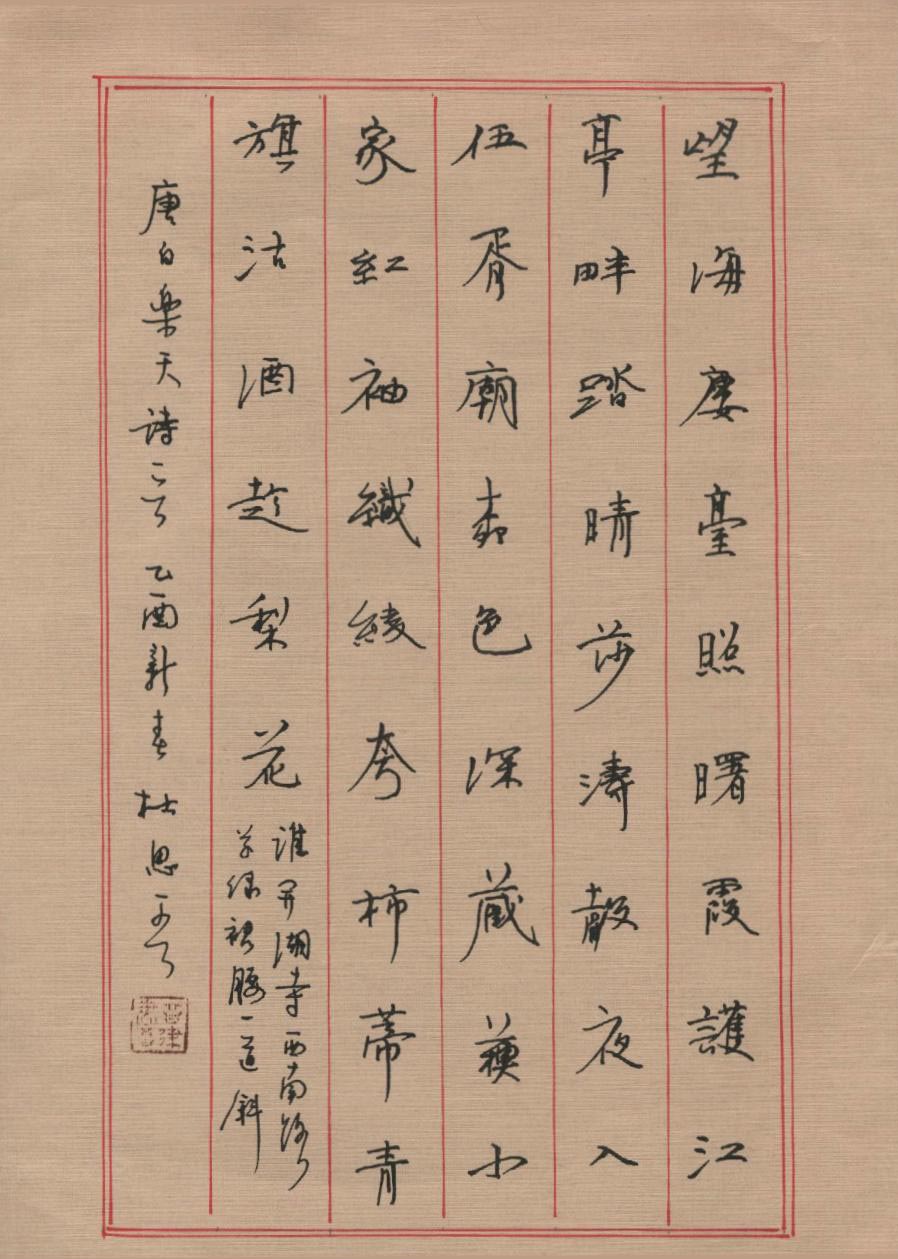 望海廔臺照曙霞護江
亭畔踏晴莎濤聲夜入
伍胥廟桺色深藏蘇小
家紅袖織綾夸柿蒂青
旗沽酒趁梨花
誰開湖寺西南路
草綠裙腰一道斜
唐白樂天詩 乙酉新春杜思